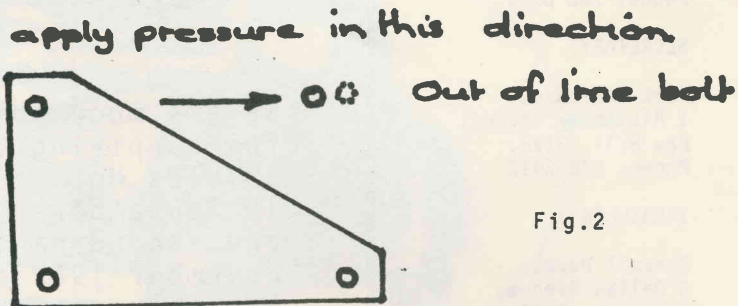 apply pressure in this direction.
Out of line bolt
Fig.2